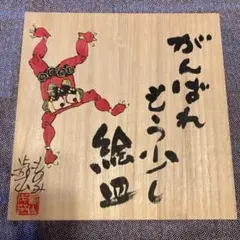 がんばれ
もう少し
絵皿